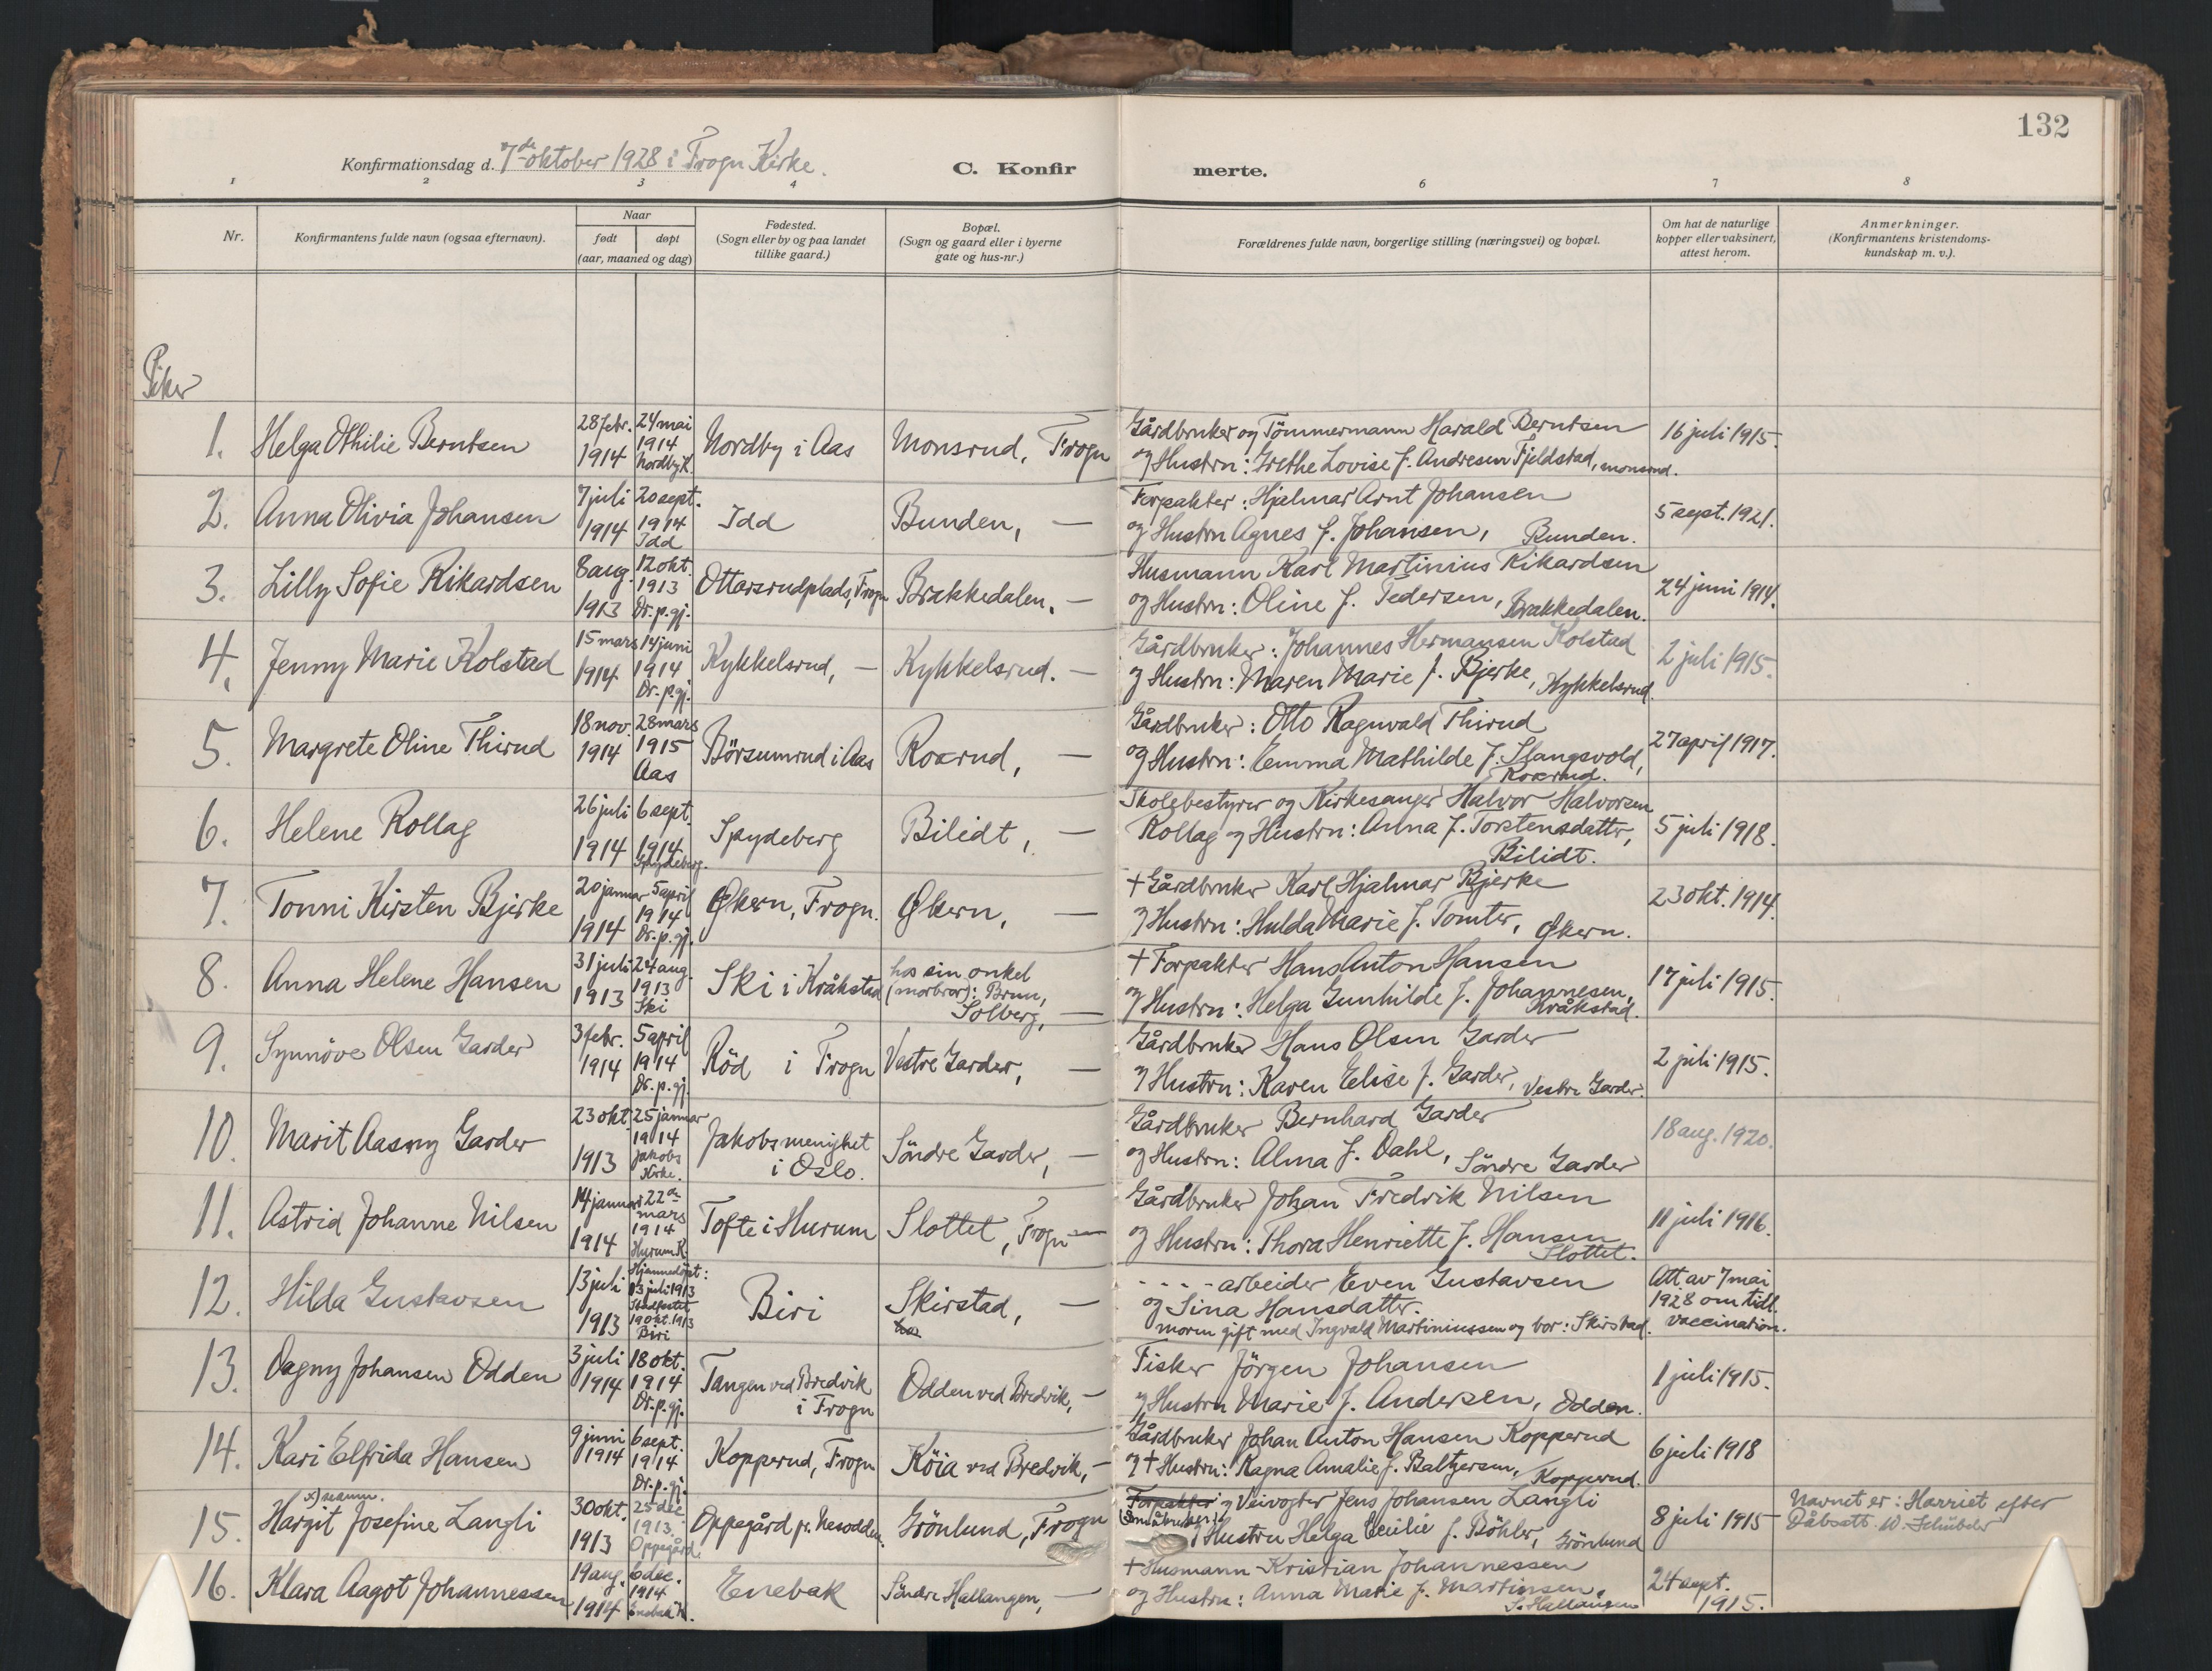 132
Konfirmationsdag d. 7de oktober 1928 i Frogn Kirke.
C. Konfirmerte.
1 2 3 4 6 7 8
Nr.
Konfirmantens fulde navn (ogsaa efternavn).
Naar
født døpt
(aar, maaned og dag)
Fødested.
(Sogn eller by og paa landet
tillike gaard.)
Bopæl.
(Sogn og gaard eller i byerne
gate og hus-nr.)
Forældrenes fulde navn, borgerlige stilling (næringsvei) og bopæl.
Om hat de naturlige
kopper eller vaksinert,
attest herom.
Anmerkninger.
(Konfirmantens kristendoms-
kundskap m. v.).
Piker
1. Helga Othilie Berntsen
28 febr. 1914
24 mai 1914 Nordby K.
Nordby i Aas
Monsrud, Frogn
Gårdbruker og Tömmermann Harald Berntsen
og Hustru: Grethe Lovise f. Andresen Fjeldstad, Monsrud.
16 juli 1915.
2. Anna Olivia Johansen
7 juli 1914
20 sept. 1914 Idd
Idd
Bunden, —
Forpakter: Hjalmar Arnt Johansen
og Hustru Agnes f. Johansen, Bunden.
5 sept. 1921.
3. Lilly Sofie Rikardsen
8 aug. 1913
12 okt. 1913 Dr. p. gj.
Ottarsrudplads, Frogn
Brakkedalen. —
Husmann Karl Martinius Rikardsen
og Hustru: Oline f. Pedersen, Brakkedalen.
24 juni 1914.
4. Jenny Marie Kolstad
15 mars 1914
14 juni 1914 Dr. p. gj.
Kykkelsrud, —
Kykkelsrud. —
Gårdbruker: Johannes Hermansen Kolstad
og Hustru: Maren Marie f. Bjerke, Kykkelsrud.
2 juli 1915.
5. Margrete Oline Thirud
18 nov. 1914
28 mars 1915 Aas
Börsumrud i Aas
Roxrud, —
Gårdbruker: Otto Ragnvald Thirud
og Hustru: Emma Mathilde f. Stangsvold,
Roxrud.
27 april 1917.
6. Helene Rollag
26 juli 1914
6 sept. 1914 Spydeberg.
Spydeberg
Bilidt, —
Skolebestyrer og Kirkesanger Halvor Halvorsen
Rollag og Hustru: Anna f. Torstensdatter,
Bilidt.
5 juli 1918.
7. Tonni Kirsten Bjerke
20 januar 1914
5 april 1914 Dr. p. gj.
Økern, Frogn.
Økern, —
+ Gårdbruker Karl Hjalmar Bjerke
og Hustru: Hulda Marie f. Tomter, Økern.
23 okt. 1914.
8. Anna Helene Hansen
31 juli 1913
24 aug. 1913 Ski
Ski i Kråkstad
hos sin onkel
(morbror): Brun,
Solberg, —
+ Forpakter Hans Anton Hansen
og Hustru: Helga Gunhilde f. Johannesen,
Kråkstad.
17 juli 1915.
9. Synnöve Olsen Garder
3 febr. 1914
5 april 1914 Dr. p. gj.
Röd i Frogn
Vestre Garder, —
Gårdbruker Hans Olsen Garder
og Hustru: Karen Elise f. Garder, Vestre Garder.
2 juli 1915.
10. Marit Aasny Garder
23 okt. 1913
25 januar 1914 Jakobs Kirke.
Jakobs menighet
i Oslo.
Söndre Garder, —
Gårdbruker Bernhard Garder
og Hustru: Alma f. Dahl, Söndre Garder
18 aug. 1920.
11. Astrid Johanne Nilsen
14 januar 1914
22de mars 1914 Hurum K.
Tofte i Hurum
Slottet, Frogn —
Gårdbruker Johan Fredrik Nilsen
og Hustru: Thora Henriette f. Hansen
Slottet.
11 juli 1916.
12. Hilda Gustavsen
13 juli 1913
Hjemmedöpt: 13 juli 1913 Stadfestet 19 okt. 1913 Biri
Biri
Skirstad, —
hos
- - - - arbeider Even Gustavsen
og Sina Hansdatter.
moren gift med Ingvald Martiniussen og bor: Skirstad.
Att. av 7 mai
1928 om tidl.
vaccination.
13. Dagny Johansen Odden
3 juli 1914
18 okt. 1914 Dr. p. gj.
Tangen ved Bredvik
i Frogn
Odden ved Bredvik, —
Fisker Jörgen Johansen
og Hustru Marie f. Andersen, Odden.
1 juli 1915.
14. Kari Elfrida Hansen
9 juni 1914
6 sept. 1914 Dr. p. gj.
Kopperud, Frogn
Köia ved Bredvik, —
Gårdbruker Johan Anton Hansen Kopperud
og + Hustru: Ragna Amalie f. Baltzersen, Kopperud.
6 juli 1918
15. Hargit Josefine Langli
30 okt. 1913
25 dec. 1913. Oppegård.
Oppegård pr. Nesodden.
Grönlund, Frogn
Forpakter og Veivogter Jens Johansen Langli
(Småbruker) og Hustru Helga Cecilie f. Böhler, Grönlund
8 juli 1915
Navnet er: Harriet efter
Dåbsatt. W. Schübeler
16. Klara Aagot Johannessen
19 aug. 1914
6 dec. 1914 Enebak K.
Enebak
Söndre Hallangen, —
+ Husmann Kristian Johannessen
og Hustru: Anna Marie f. Martinsen,
S. Hallangen
24 sept.
1915.